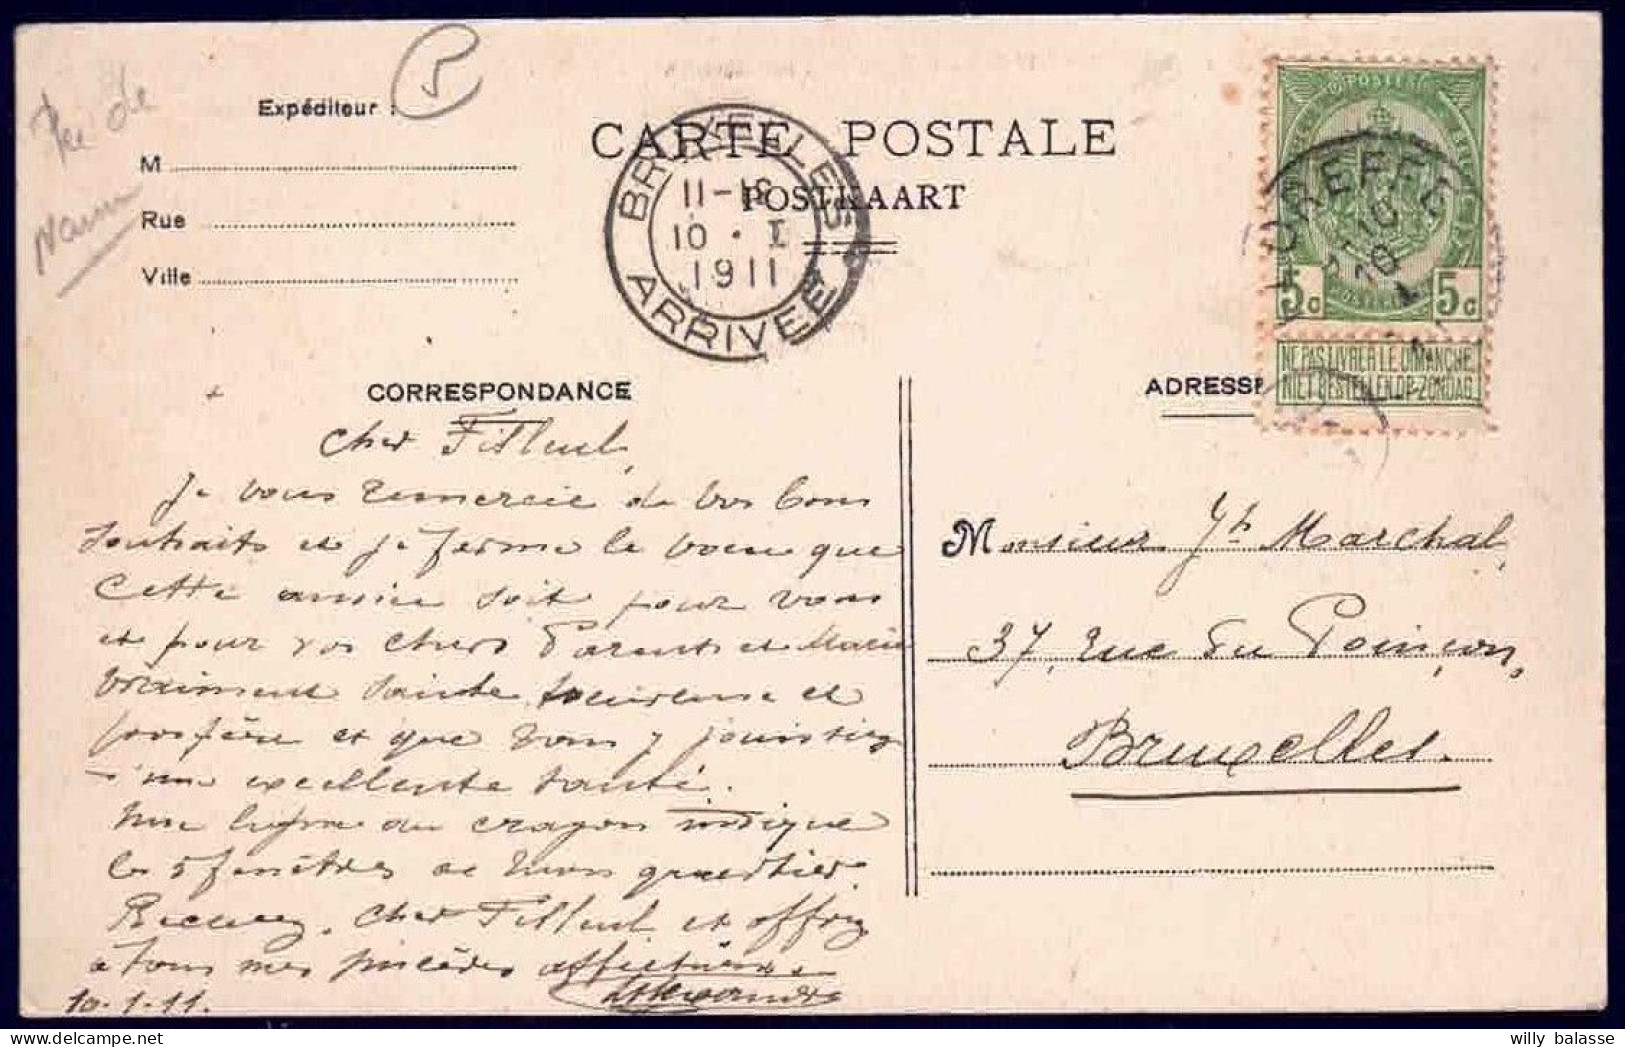 Pce de
Namur
5
Expéditeur :
M
Rue
Ville
CARTE POSTALE
POSTKAART
BRUXELLES
11-18
10 · I
1911
ARRIVEE
POSTES
FLOREFFE
10
5c 5c
NE PAS LIVRER LE DIMANCHE
NIET BESTELLEN OP ZONDAG
CORRESPONDANCE
ADRESSE
Cher Filleul,
Je vous remercie de vos bons
souhaits et je forme le voeu que
cette année soit pour vous
et pour vos chers Parents et Marie
vraiment sainte, heureuse et
prospère et que vous y jouissiez
d'une excellente santé.
Une ligne au crayon indique
les 5 fenêtres de mon quartier.
Recevez, cher Filleul et offrez
à tous mes sincères
10-1-11.
Monsieur Jh Marchal,
37, rue du Poinçon,
Bruxelles.
willy balasse